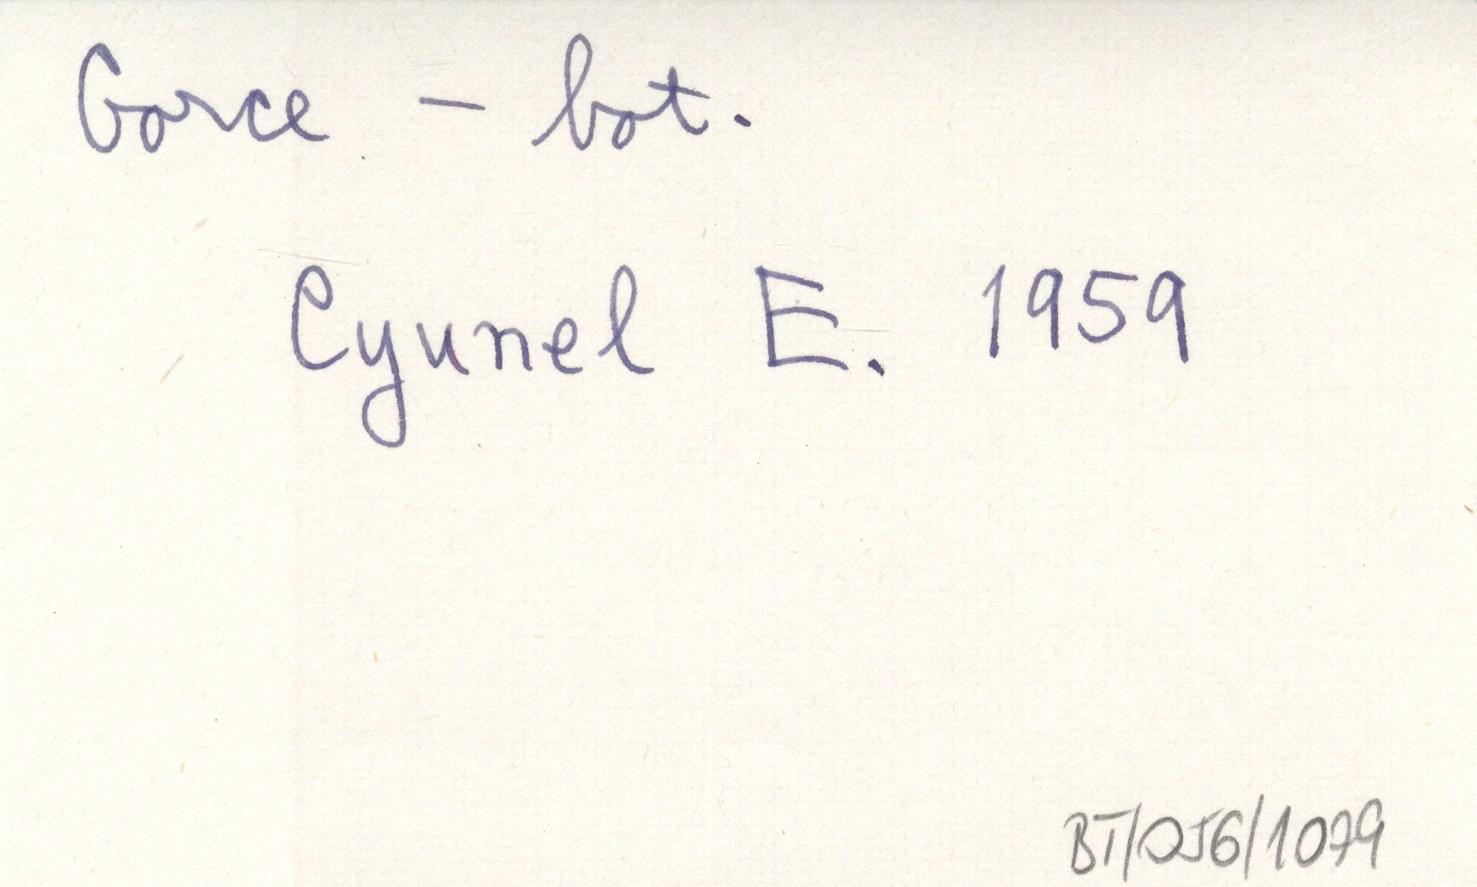 Gorce - bot.
Cyunel E. 1959
BT/OJG/1079